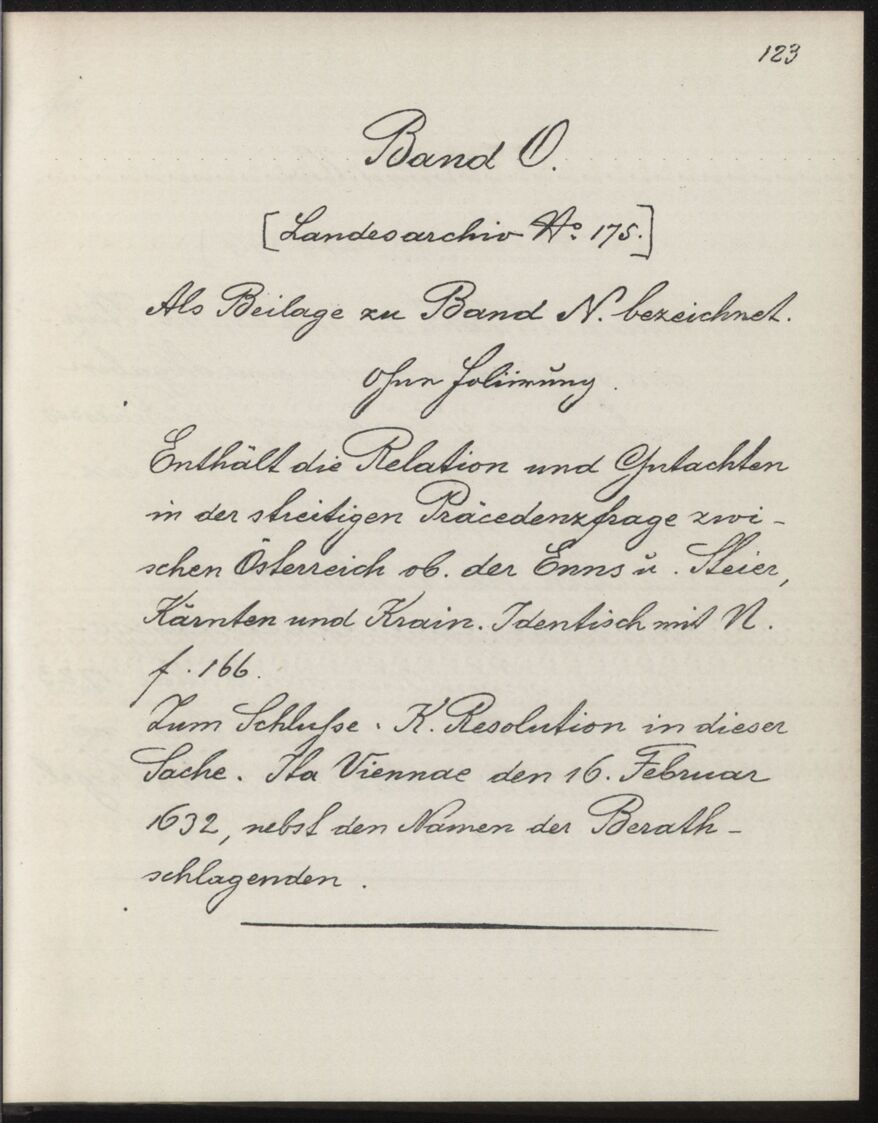 123
Band O.
[Landesarchiv No. 175.]
Als Beilage zu Band N. bezeichnet.
Ohne Foliirung.
Enthält die Relation und Gutachten
in der streitigen Präcedenzfrage zwi-
schen Österreich ob. der Enns u. Steier,
Kärnten und Krain. Identisch mit N.
f. 166.
Zum Schluße. K. Resolution in dieser
Sache. Ita Viennae den 16. Februar
1632, nebst den Namen der Berath-
schlagenden.